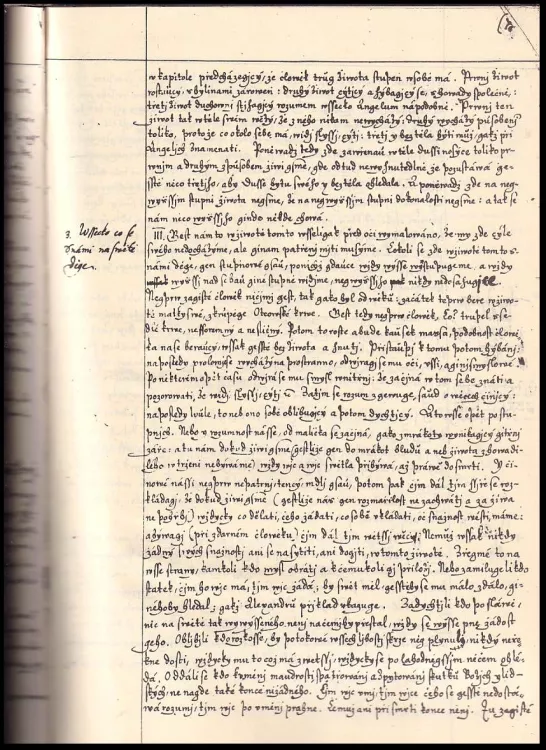 w kapitole předcházegjcý, že člowěk trúg žiwota stupeň w sobě má. Prwnj žiwot
rostaucý, w bylinami zawřen: druhý žiwot cýtjcý a hýbagjcý se, s howady společné:
třetj žiwot duchownj stihagjcý rozumem wssecko Angelum nápodobné. Prwnj ten
žiwot tak w těle swém wězý, že z něho nikam newycházý: druhý wycházý působenj
toliko, protože co okolo sebe má, widj slyssj, cýtj: třetj y bez těla býti můž, gakž při
Angeljch znamenati. Poněwadž tedy zde zawřenau w těle dussi nosýce toliko pr-
wnjm a druhým způsobem žiwi gsme, gde odtud newyhnutedlně že pozůstáwá ge-
sstě něco třetjho, aby dusse bytu swého y bez těla ohledala. A poněwádž zde na neg-
wyžssjm stupni žiwota negsme, že na negwyžssjm stupni dokonalosti negsme: a tak se
nám něco wyžssjho ginde někde chowá.
3. Wssecko co se
s námi na swětě
děge.
III. Gest nám to w žiwotě tomto wsseligak před oči wymalowáno, že my zde cýle
swého nedocházýme, ale ginam patřenj mjti musýme. Cokoli se zde w žiwotě tomto s
námi děge, gen stupňowé gsau, po nichž gdauce wždy wýsse wstupugeme, a wždy
wyssj nad sebau giné stupně widjme, negwyžssjho nikdy nedosahugjce
Neyprw zagisté člowěk ničjmž gest, tak gako byl od wěku: začátek teprw beře w žiwo-
tě matky swé, z krůpěge Otcowské krwe. Gest tedy neyprw člowěk, co? trupel sse-
dlé krwe, nesforemný a nesličný. Potom to roste a bude kausek massa, podobnost člowě-
ka na se beraucý, wssak gesstě bez žiwota a hnutj. Přistaupj k tomu potom hýbánj,
naposledy prolomjc se wycházý na prostranno, odwjragj se mu oči, ussi, a ginj smyslowé.
Po některém opět času odwjrá se mu smysl wnitřnj, že začjná w tom sebe znáti a
pozorowati, že widj, slyssj, cýtj &amp; Zatjm se rozum zgewuge, saud o wěcech činjcý:
naposledy wůle, to neb ono sobě oblibugjcý a potom dychtjcý. A to wsse opět po stu-
pnjch. Nebo y rozumnost násse, od malička se začjná, gako z mrákoty wynikagjcý gitřnj
záře: a tu nám dokud žiwi gsme (gestliže gen do mrákot bludů a neb žiwota z howadi-
lého wtrženi nebýwáme) wždy wjc a wjc swětla přibýwá, až práwě do smrti. Y či-
nowé nássi neyprw nepatrnj, tencý, mdlj gsau, potom pak čjm dál tjm ssjře se roz-
kládagj, že dokud žiwi gsme (gestliže nás gen rozmařilost nezachwátj a za žiwa
nepohřbj) wždycky co dělati, čeho žádati, co sobě wkládati, oč snažnost wésti, máme:
a býwagj (při zdárném člowěku) čjm dál tjm wětssj wěcy. Nemůž wssak nikdy
žádný swých snažnostj ani se nasýtiti, ani dogjti, w tomto žiwotě. Zřegmě to na
wsse strany, kamkoli kdo mysl obrátj a k čemukoli gj přiložj. Nebo zamiluge li kdo
statek, čjm ho wjc má, tjm wjc žádá: by swět měl gesstě by se mu málo zdálo, gi-
ného by hledal: gakž Alexandrů přjklad ukazuge. Zadychtj li kdo po sláwě,
nic na swětě tak wywýsseného nenj na čemž by přestal, wždy se wýsse pne žádost
geho. Obljbjli kdo rozkosse, by potokowé wssech libostj skrze něg plynuly, nikdy neře-
kne dosti, wždycky mu to což má zwetssj: wždycky se po lahodněgssjm něčem ohlé-
dá. Oddáli se kdo k uměnj maudrosti spatřowánj a zpytowánj skutků Božských y lid-
ských, nenagde také konce nižádného. Čjm wjc umj, tjm wjce čeho se gesstě nedostá-
wá rozumj, tjm wjc po uměnj prahne. Čemuž ani při smrti konce nenj. Tu zagisté